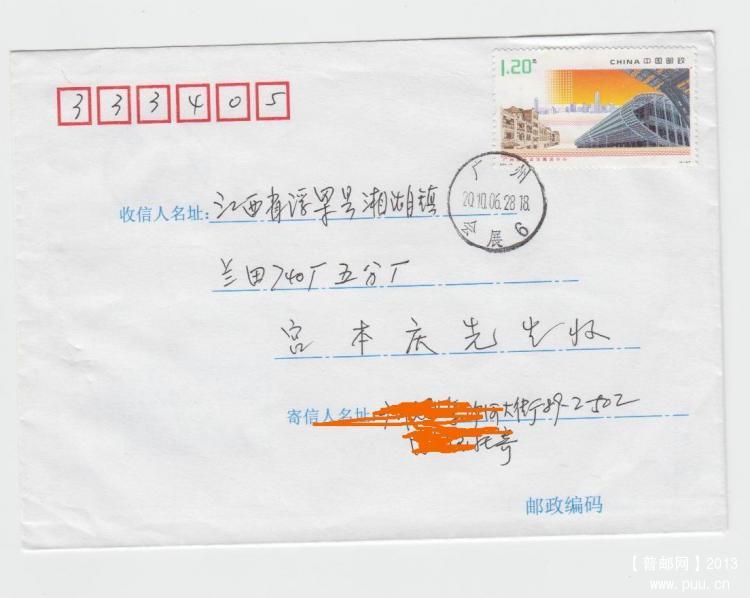 1.20元
CHINA 中国邮政
333405
广州
2010.06.28.18.
会展
6
收信人名址: 江西省浮梁县湘湖镇
兰田740厂五分厂
宫本庆先生收
寄信人名址: 大街89-2-502
寄
邮政编码
【普邮网】2013
www.puu.cn